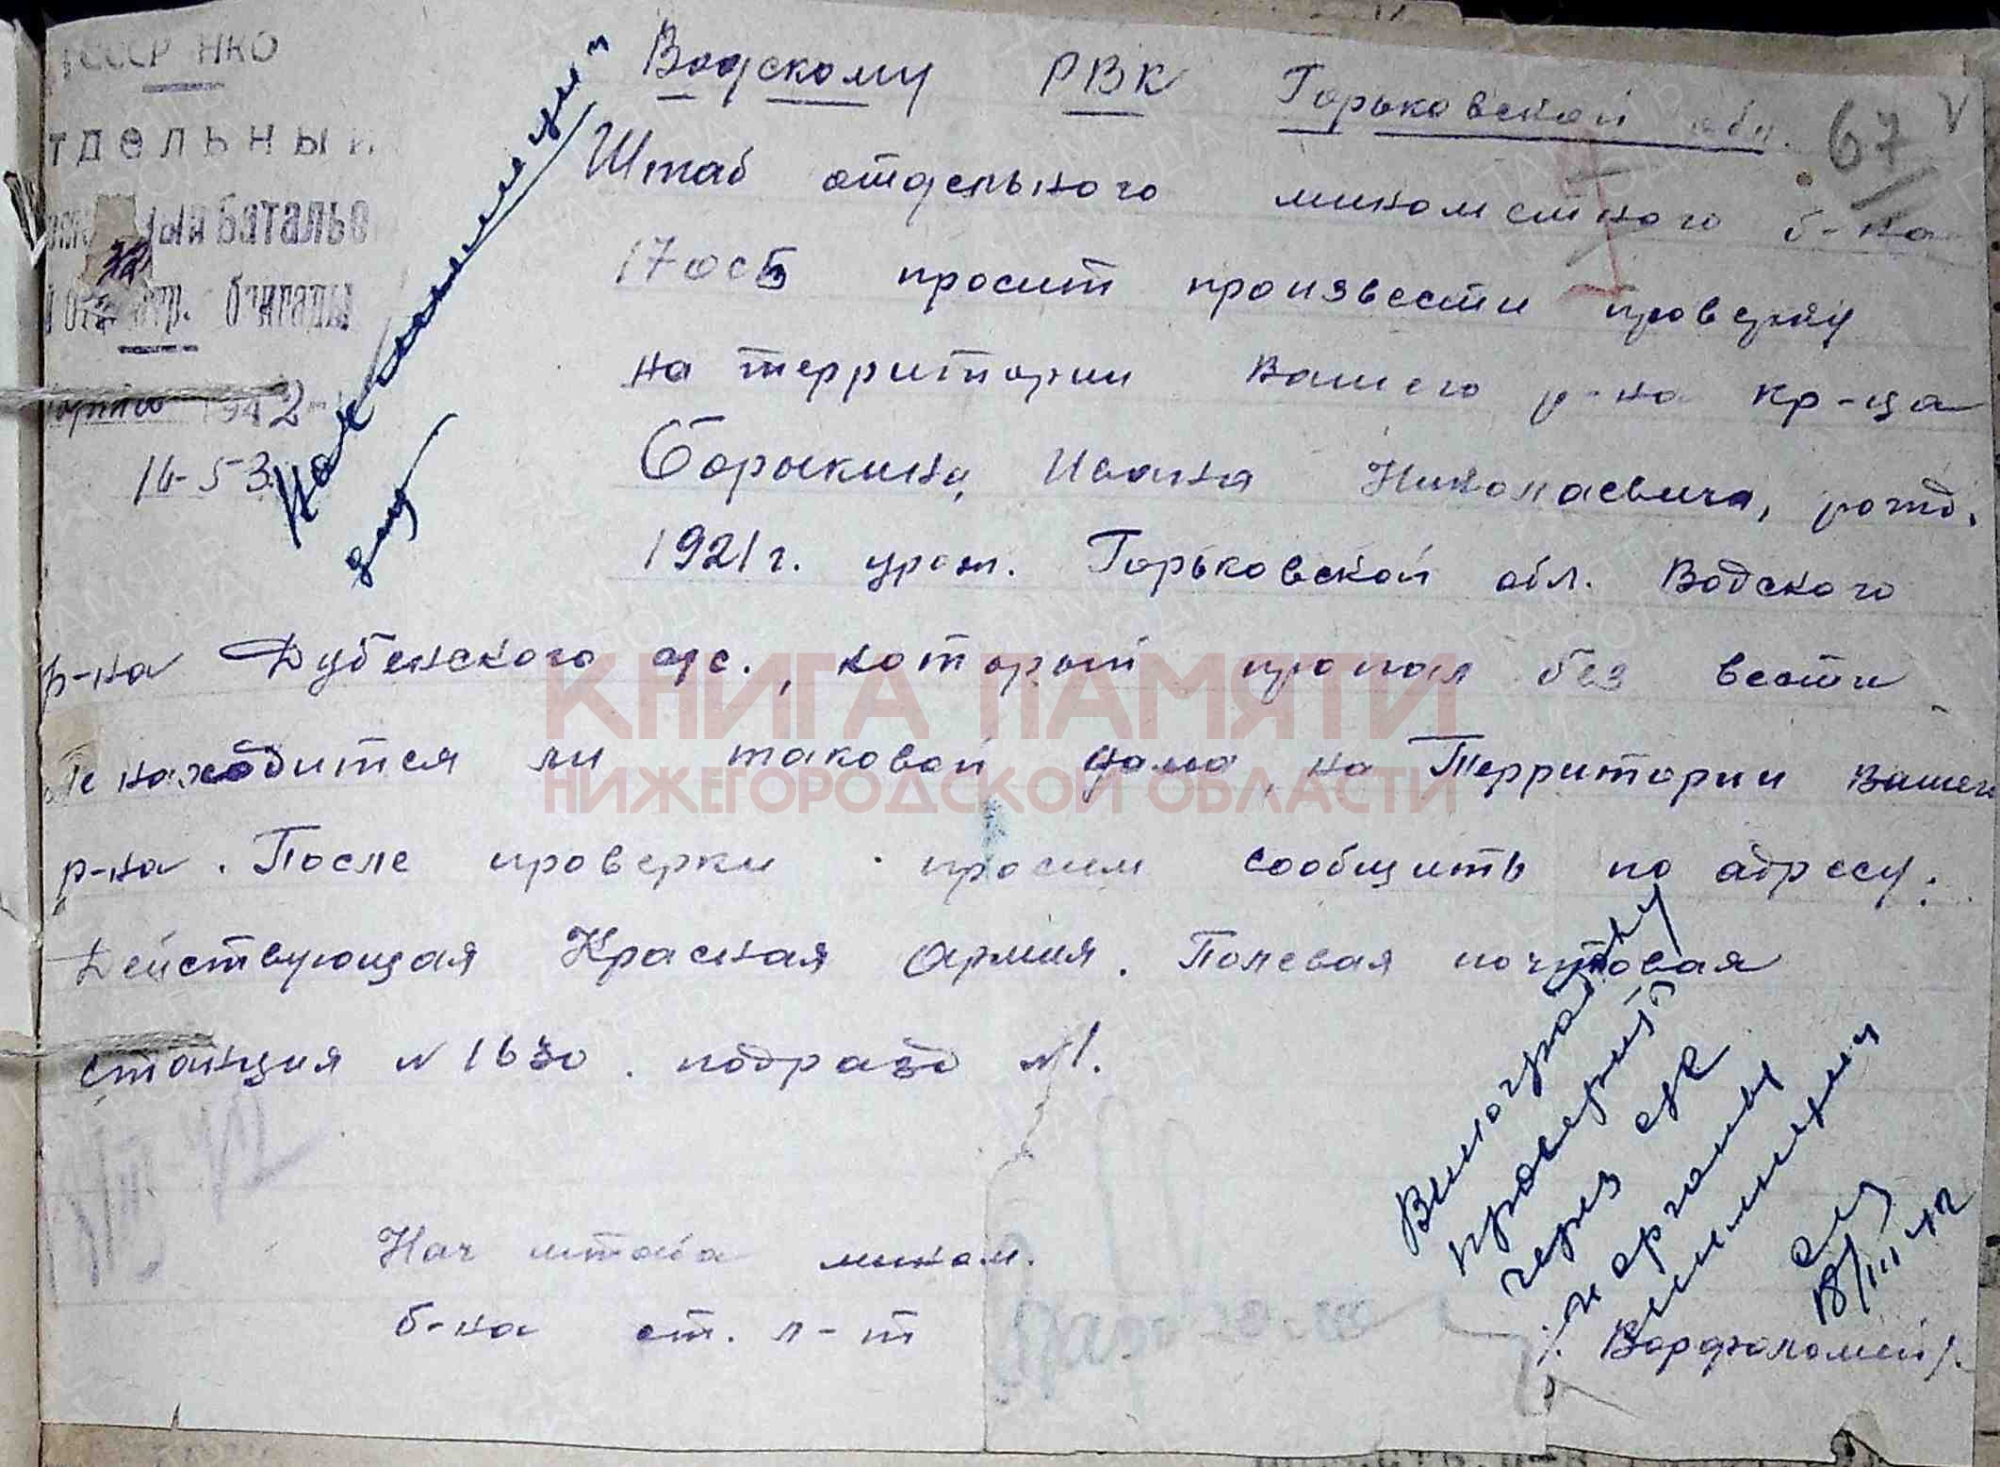 СССР НКО
тдельны
батальо
бригады
1942
16-53
Водскому РВК Горьковской обл.
67
Штаб отдельного минометного б-на
17 ОСБ просит произвести проверку
на территории Вашего р-на кр-ца
Борыкина Ивана Николаевича, рожд.
1921 г. урож. Горьковской обл. Водского
р-на Дубенского с/с., который пропал без вести
Не находится ли таковой дома, на Территории Вашего
р-на. После проверки просим сообщить по адресу:
Действующая Красная Армия. Полевая почтовая
станция №1630. подразд №1.
Нач штаба мином.
б-на ст. л-т
/Варфоломей/
Виноградову
проверить
через
и органы
милиции
18/III 42
КНИГА ПАМЯТИ
НИЖЕГОРОДСКОЙ ОБЛАСТИ